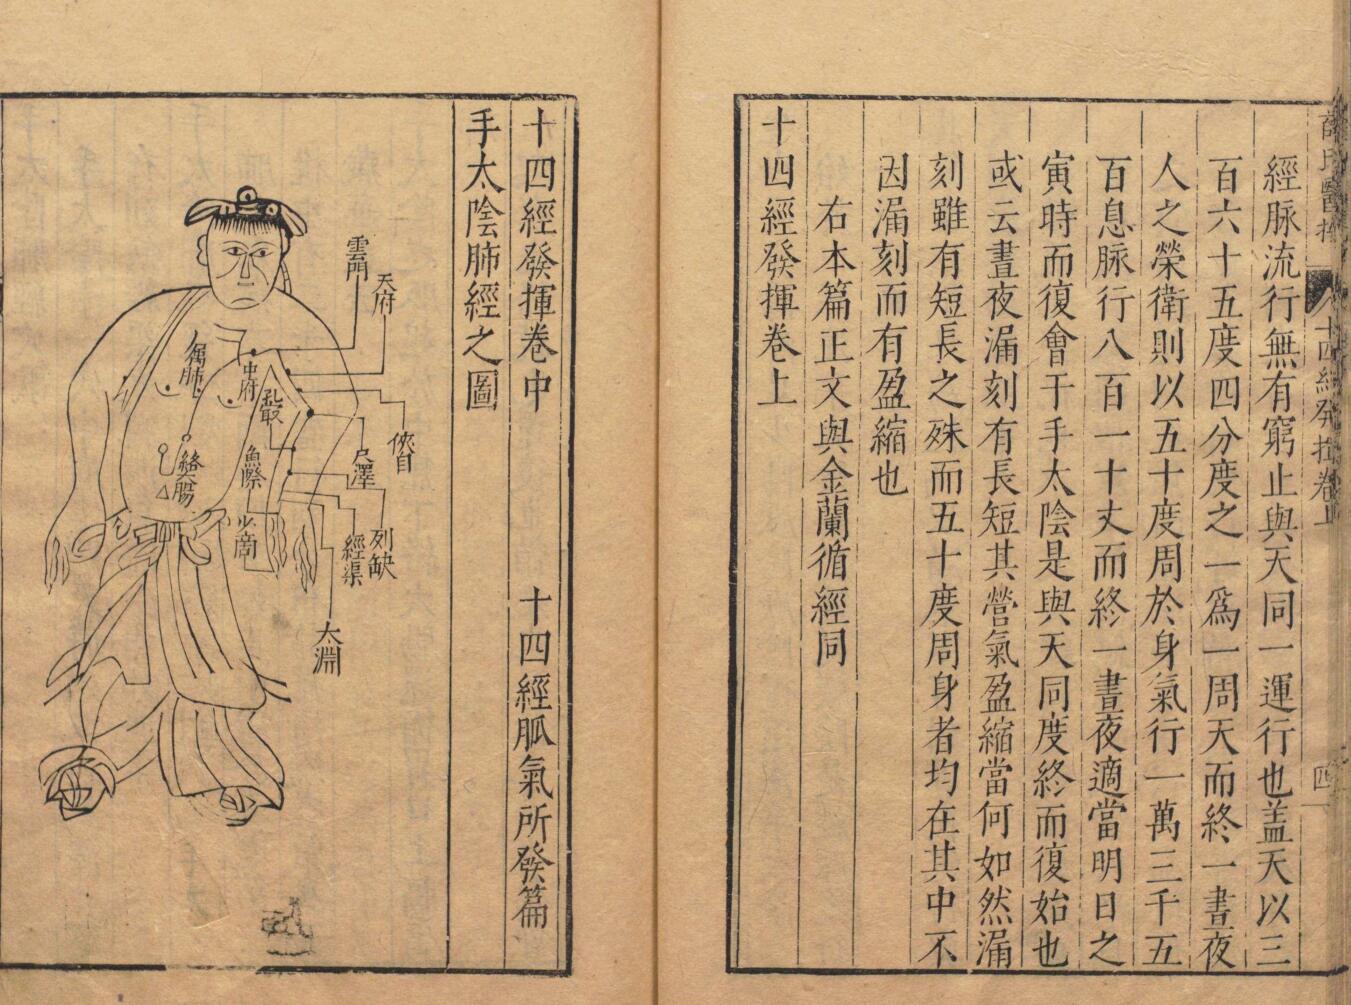 薛氏醫按
十四經發揮卷上
四
經脉流行無有窮止與天同一運行也盖天以三
百六十五度四分度之一爲一周天而終一晝夜
人之榮衛則以五十度周於身氣行一萬三千五
百息脉行八百一十丈而終一晝夜適當明日之
寅時而復會于手太陰是與天同度終而復始也
或云晝夜漏刻有長短其營氣盈縮當何如然漏
刻雖有短長之殊而五十度周身者均在其中不
因漏刻而有盈縮也
右本篇正文與金蘭循經同
十四經發揮卷上
十四經發揮卷中
十四經脈氣所發篇
手太陰肺經之圖
雲門
天府
中府
俠白
尺澤
孔最
列缺
經渠
太淵
魚際
少商
屬肺
絡大腸